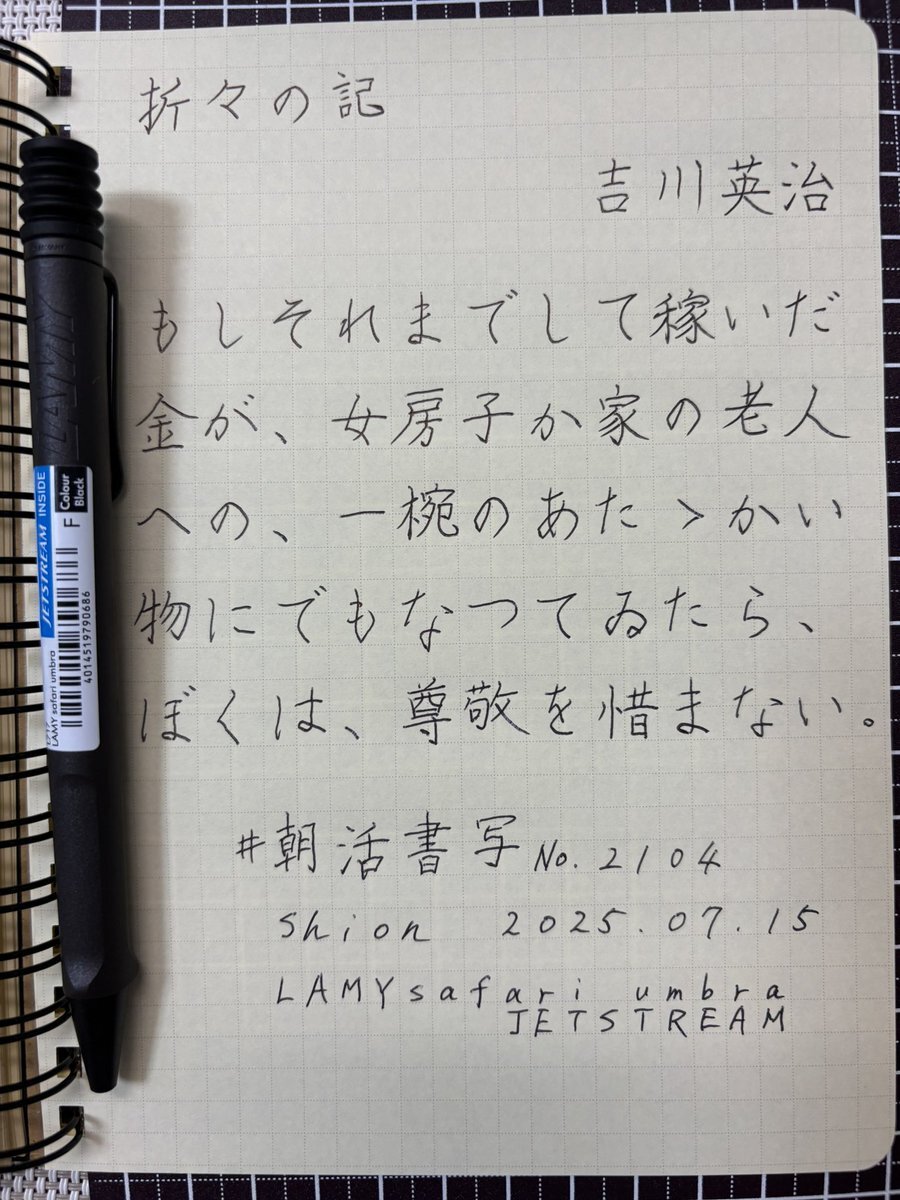 折々の記
吉川英治
もしそれまでして稼いだ
金が、女房子か家の老人
への、一椀のあたゝかい
物にでもなつてゐたら、
ぼくは、尊敬を惜まない。
#朝活書写 No. 2104
Shion 2025.07.15
LAMY safari umbra
JETSTREAM
LAMY
JETSTREAM INSIDE
Colour
Black
F
4014519790686
LAMY safari umbra